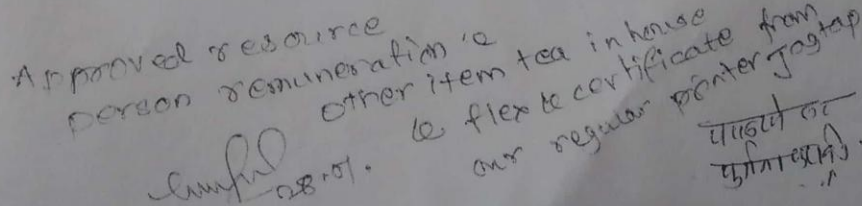 Approved resource
person remuneration &
other item tea in house
& flex & certificate from
our regular printer Jagtap
28.01.